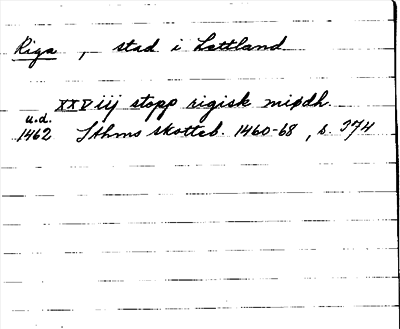 Riga, stad i Lettland
XXViij stopp rigisk miödh.
u.d.
1462 Sthms skotteb. 1460-68, s. 374